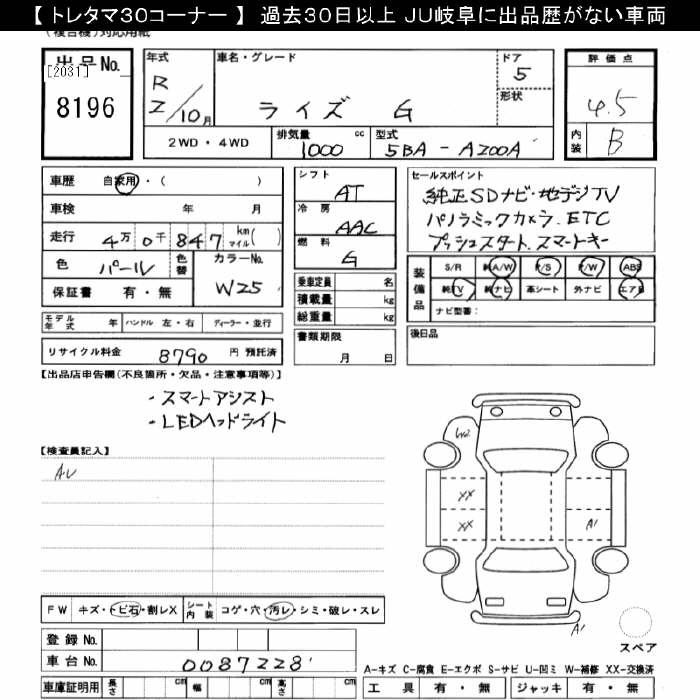 【 トレタマ30コーナー 】 過去30日以上 JU岐阜に出品歴がない車両
(複合機)対応用紙
出品No.
[2031]
8196
年式
R
2/10月
車名・グレード
ライズ G
ドア
5
形状
評価点
4.5
内装
B
2WD・4WD
排気量
cc
1000
型式
5BA - A200A
車歴 自家用・( )
車検 年 月
走行 4万 0千 847 km マイル ( )
色 パール
色替
カラーNo.
W25
保証書 有・無
シフト
AT
冷房
AAC
燃料
G
乗車定員 名
積載量 kg
総重量 kg
セールスポイント
純正SDナビ・地デジTV
パノラミックカメラ. ETC
プッシュスタート. スマートキー
装備品
S/R 純A/W P/S P/W ABS
純TV 純ナビ 革シート 外ナビ エアB
ナビ型番:
モデル年式 年 ハンドル 左・右 ディーラー・並行
リサイクル料金 8790 円 預託済
書類期限
月 日
後日品
【出品店申告欄(不良箇所・欠品・注意事項等)】
・スマートアシスト
・LEDヘッドライト
【検査員記入】
A.U
W2
XX
XX
A1
A1
FW キズ・トビ石・割レX
シート内装 コゲ・穴・汚レ・シミ・破レ・スレ
登録No.
車台No. 0087228
車庫証明用 長さ cm 幅 cm 高さ cm
スペア
A-キズ C-腐食 E-エクボ S-サビ U-凹ミ W-補修 XX-交換済
工具 有・無 ジャッキ 有・無